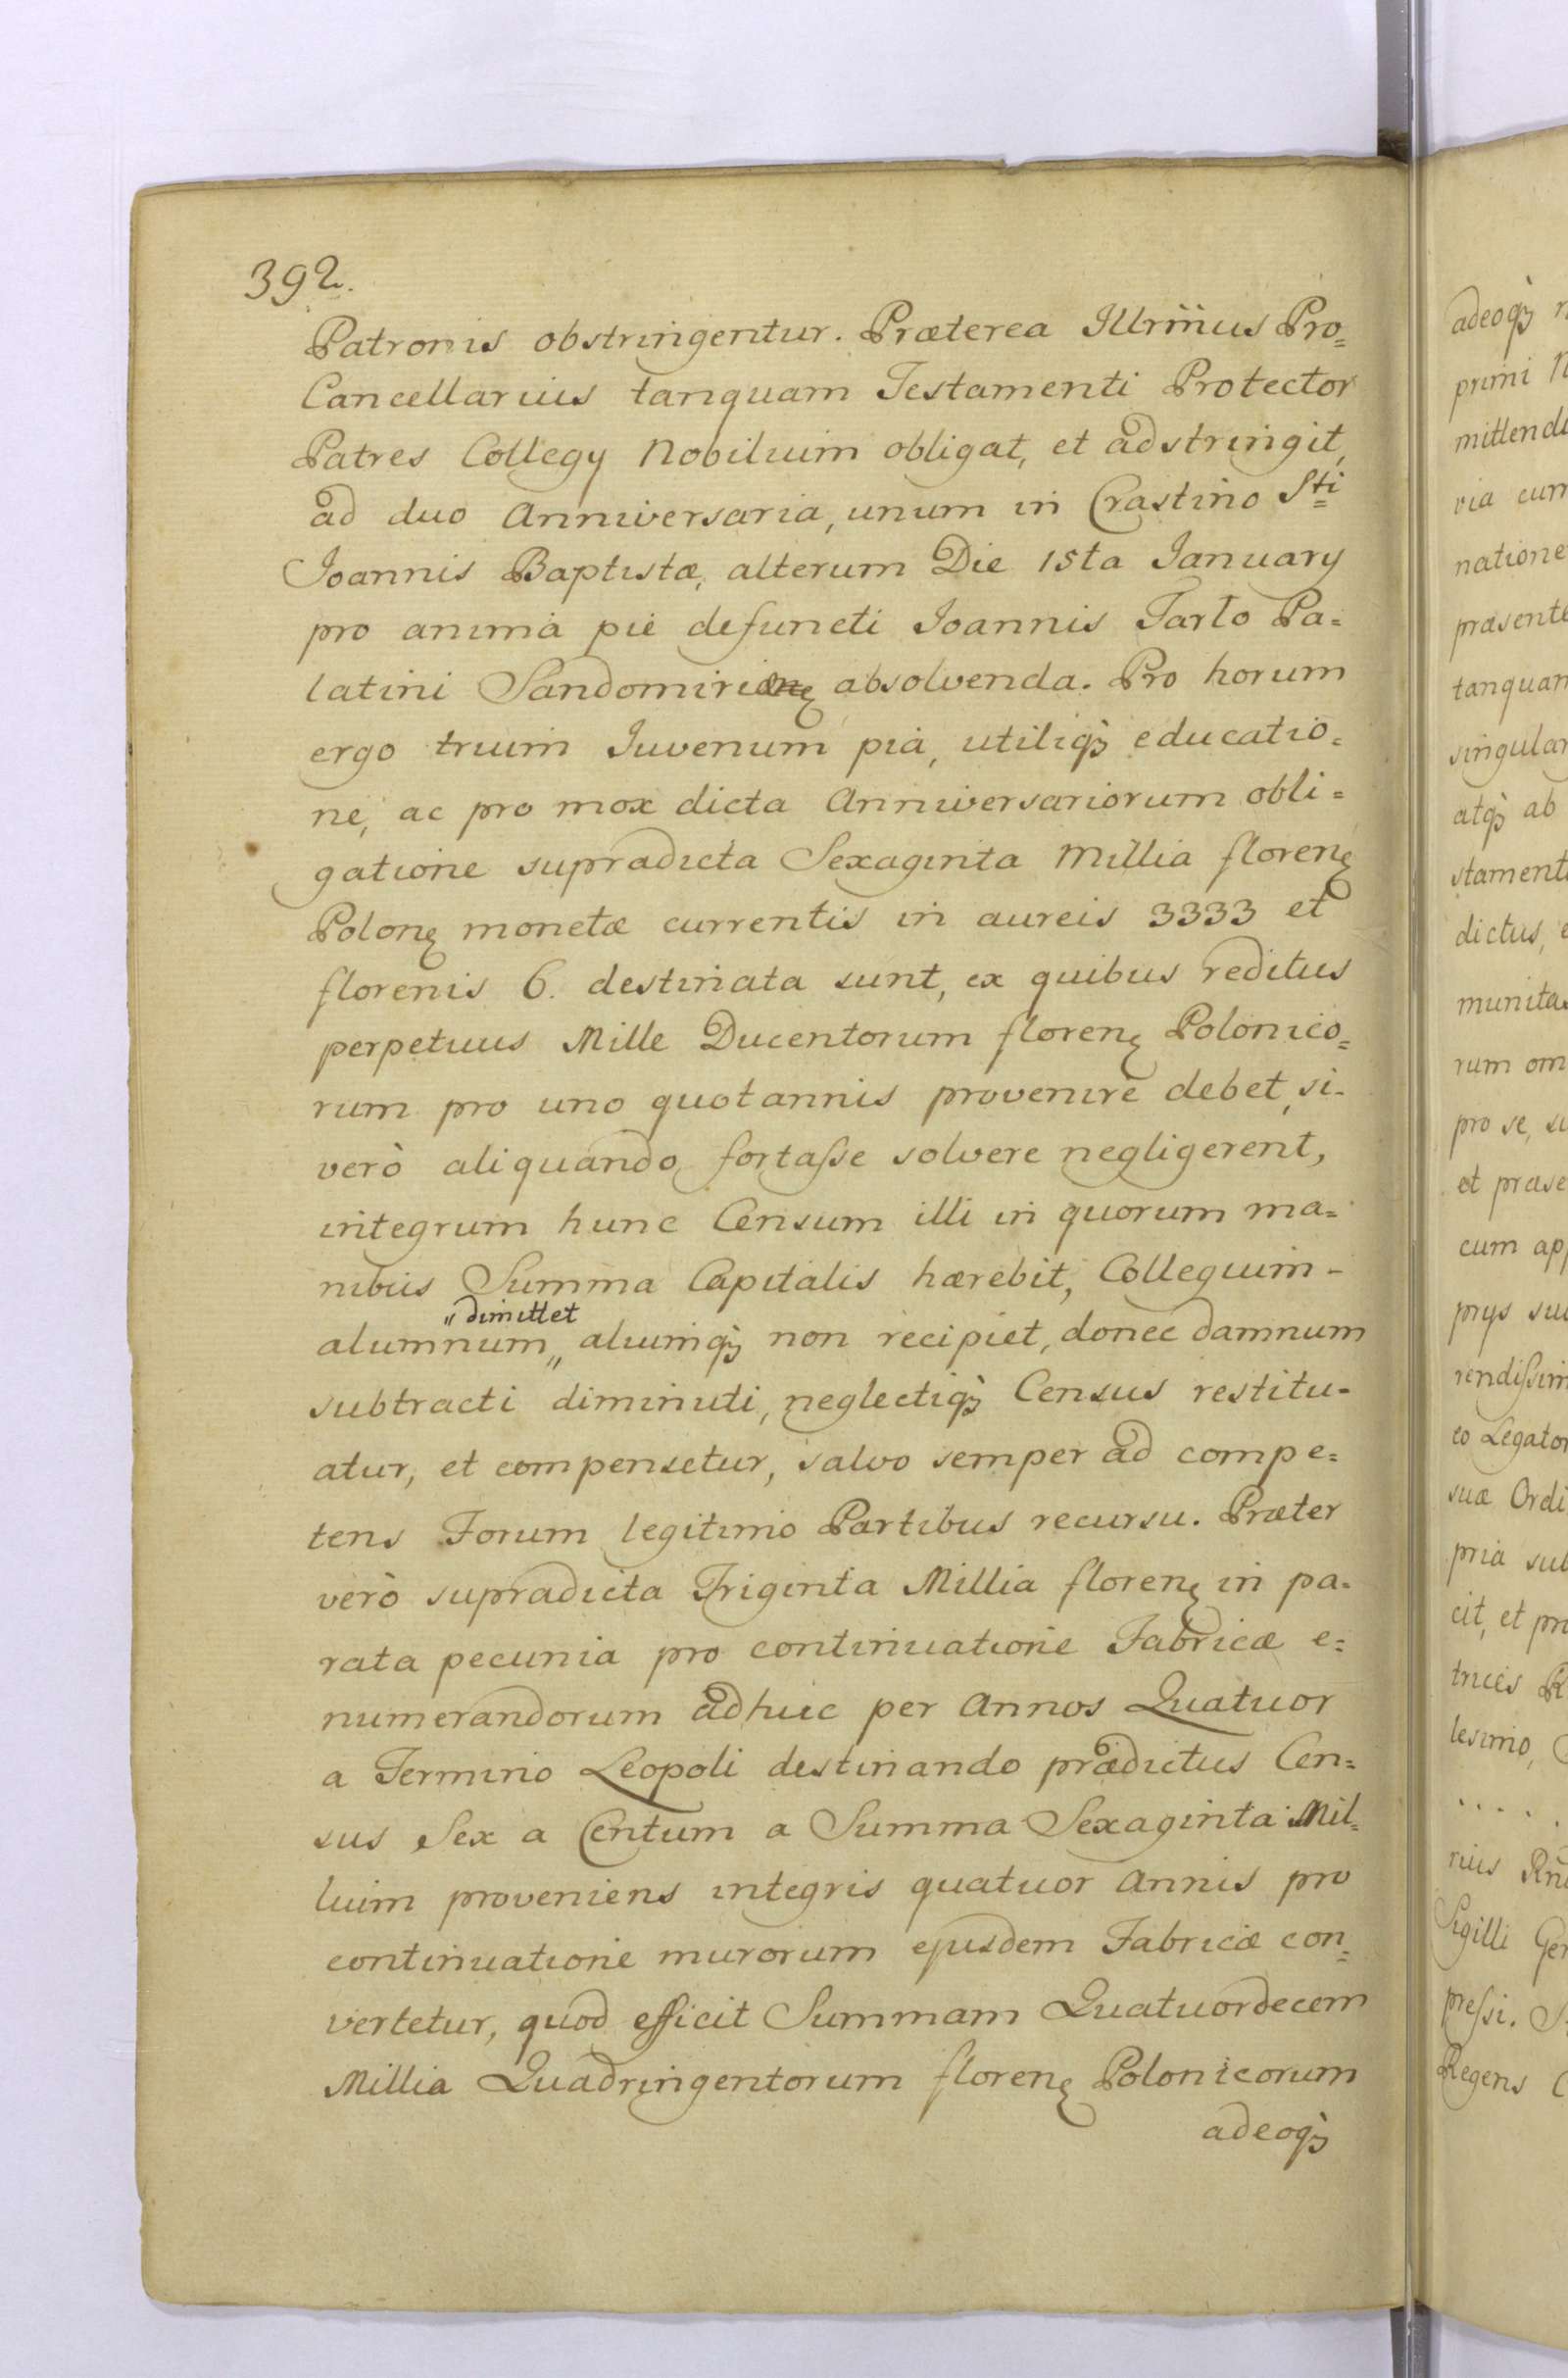 392.
Patronis obstringentur. Præterea Illrm̃us Pro=
Cancellarius tanquam Testamenti Protector
Patres Collegy Nobilium obligat, et adstringit,
ad duo Anniversaria, unum in Crastino Sti
Joannis Baptistæ, alterum Die 15ta January
pro animà pie defuncti Joannis Tarlo Pa=
latini Sandomirien̨ absolvenda. Pro horum
ergo trium Juvenum pià, utiliq̀ꝫ educatio=
ne, ac pro mox dicta Anniversariorum obli=
gatione supradicta Sexaginta Millia floren̨
Polon̨ monetæ currentis in aureis 3333 et
florenis 6. destinata sunt, ex quibus reditus
perpetuus Mille Ducentorum floren̨ Polonico=
rum pro uno quotannis provenire debet, si-
verò aliquando fortaſse solvere negligerent,
integrum hunc Censum illi in quorum ma=
nibus Summa Capitalis hærebit, Collegium-
„dimittet
alumnum„ aliumq̀ꝫ non recipiet, donec damnum
subtracti diminuti, neglectiq̀ꝫ Census restitu-
atur, et compensetur, salvo semper ad compe=
tens Forum legitimo Partibus recursu. Præter
verò supradicta Triginta Millia floren̨ in pa-
rata pecunia pro continuatione Fabricæ e=
numerandorum adhuc per Annos Quatuor
a Termino Leopoli destinando prædictus Cen=
sus Sex a Centum a Summa Sexaginta Mil=
lium proveniens integris quatuor Annis pro
continuatione murorum ejusdem Fabricæ con=
vertetur, quod efficit Summam Quatuordecem
Millia Quadringentorum floren̨ Polonicorum
adeoq̀ꝫ
adeoq̀ꝫ
primi
mittend
via cum
natione
præsente
tanquam
singular
atq̀ꝫ ab
stament
dictus,
munitas
rum om
pro se, su
et præse
cum app
prys su
rendiſsim
co Legator
suæ Ordi
pria sub
cit, et pro
trices R
lesimo,
. . . .
rius Rn̄
Sigilli Gen
preſsi. S
Regens C